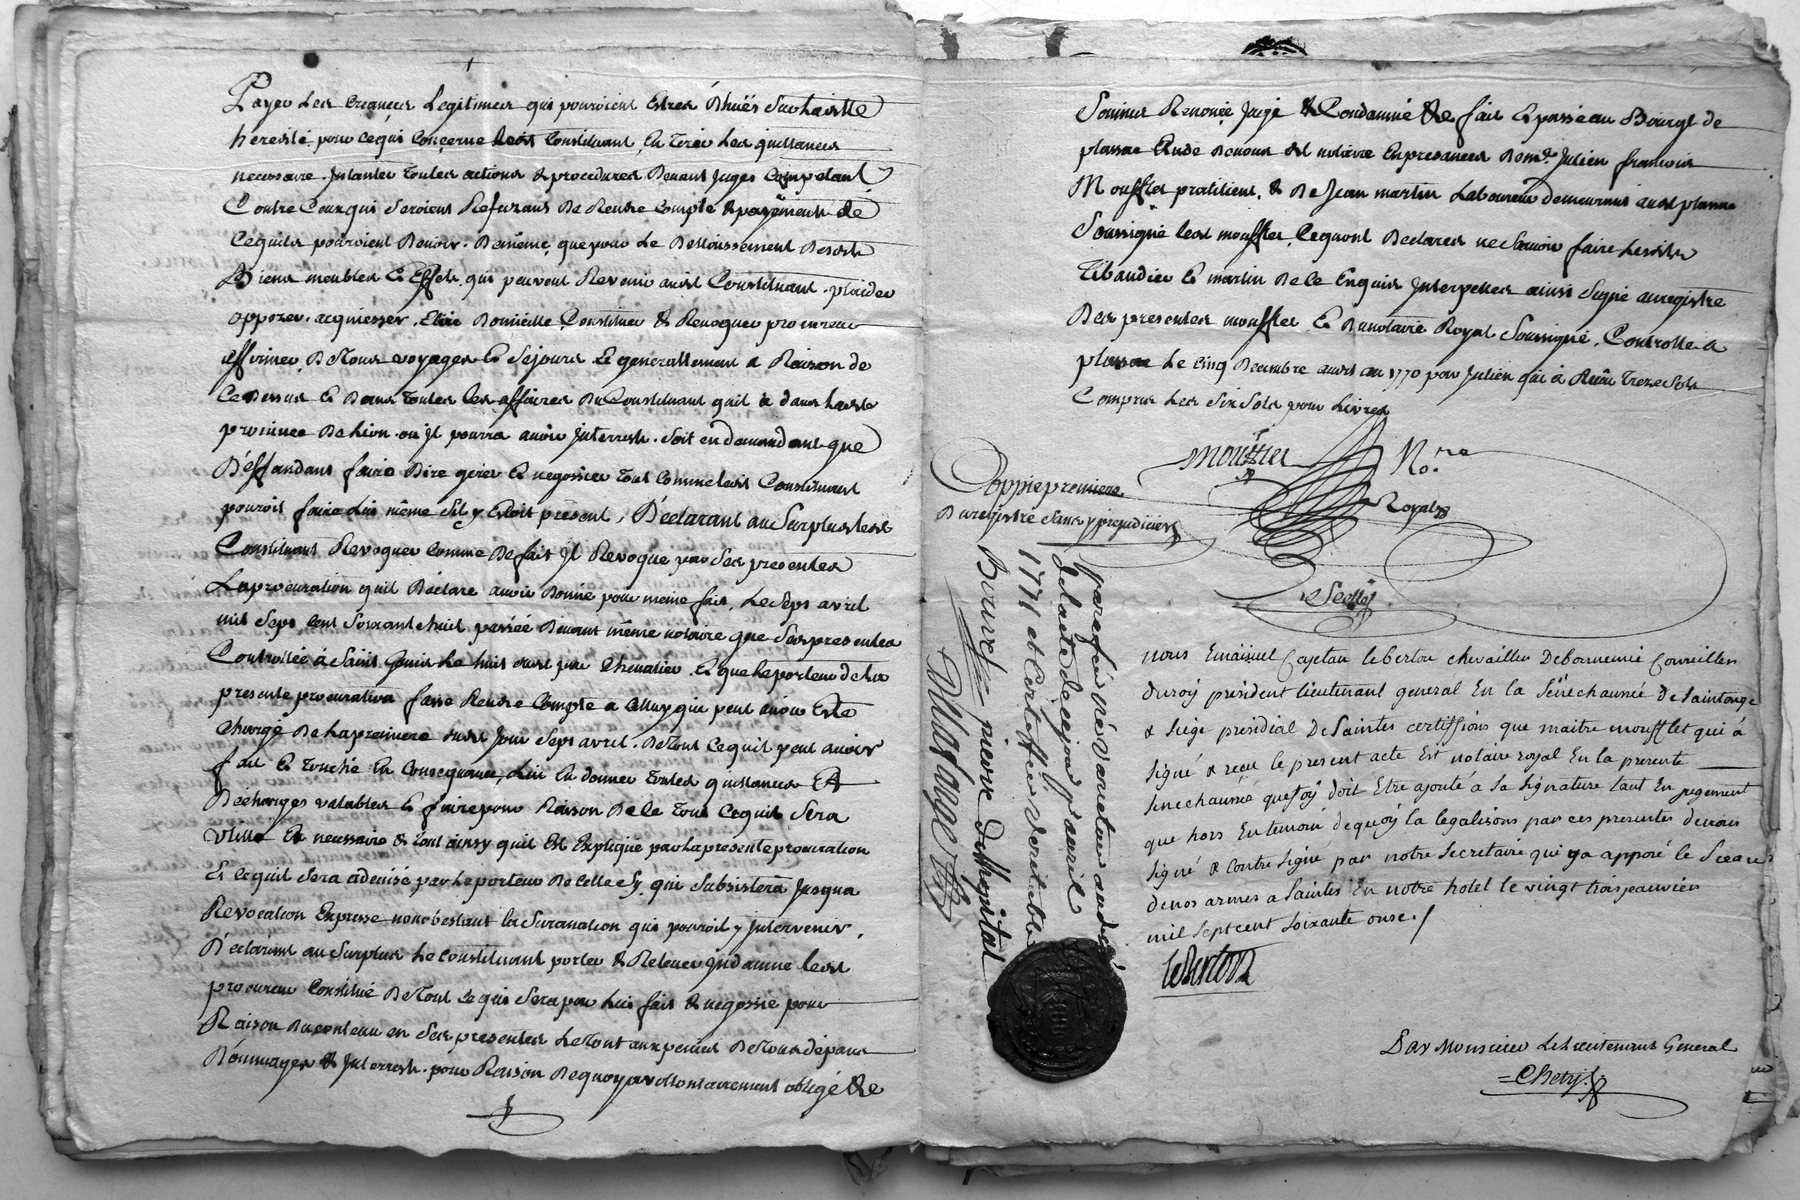 Payer les creances Legitimes qui pourroient Estres Dhuës Sur laditte
heredité pour ce qui concerne ledit Constituant, En Tirer Les quittances
necessaire. Intanter toutes actions & procedures Devant Juges Compétant
Contre Ceux qui Seroient Refuzans De Rendre Compte & payëment de
Cequils pourroient Devoir. De même que pour Le Delaissement Desdits
Biens meubles & Effets qui peuvent Revenir audit Constituant. plaider
opposer. acquiesser. Elire Domicille Constituer & Revoquer procureur
affirmer, De Tous voyages & Sejours & generallement a Raison de
Ce Dessus & Dans toutes les affaires Du Constituant quil a dans laditte
province De Lion ou Jl pourra avoir Jnterrest. Soit en demandant que
Déffandant faire Dire gérer & negossier Tout Comme ledit Constituant
pouroit faire Lui même Sil y Etoit présent, Déclarant au Surplus ledit
Constituant Revoquer Comme De fait Jl Revoque par Ses presentes
La procuration quil Déclare avoir Donné pour meme fait, Le Sept avril
mil Sept Cent Soixant huit passée Devant même notaire que Ses presentes
Controllée à Saint Genis Le huit dudit par Chevalier. Et que le porteur de La
presente procuration fasse Rendre Compte a Celluy qui peut avoir Eté
Chargé De La premiere dudit Jour Sept avril. De Tout Cequil peut avoir
fait & Touché En Consequance, Lui En donner toutes quittances Et
Décharges valables & faire pour Raison De le Tout Cequil Sera
Utille Et necessaire & tout ainsy quil Est Expliqué par La presente procuration
Et Cequil Sera advisé par Le porteur De Celle Cy, qui Subsistera Jusqua
Revocation Expresse nonobestant la Suranation qui pouroit y Intervenir,
Déclarant au Surplus Le Constituant porter & Relever Jndamne ledit
procureur Constitué De Tout Ce qui Sera par Lui fait & negossié pour
Raison Du contenu en Ses presentes Le Tout aux peines De Tous dépans
Dommages & Jnterrests. pour Raison De quoy a volontairement obligé &c
Soumis Renoncé Jugé & Condamné &c fait & passé au Bourgt de
plassac Etude De nous dit notaire En presances De me. Julien françois
Moufflet pratitient & De Jean martin Laboureur demeurant audt plassac
Soussigné ledt moufflet, Ce quont Declarez ne Savoir faire Lesdits
Tibaudier & martin De Ce Enquis Jnterpellez ainsi Signé au registre
Des presentes moufflet & Du notaire Royal Soussigné. Controllé a
plassac Le Cinq Decembre audit an 1770 par Julien qui à Reçû Treze Sols
Compris Les Six Sols pour Livres
moufflet No.re
Royal
Scellé
Coppie premiere
Du registre Sans y préjudicier
Paraphé né varietur au désir
de lacte de cejourd'hui avril
1771 et Certiffié veritable
Bruvet mere de lhopital
Nous Emanuel Cajetan le berton chevaillier De bonnemie Conseiller
du roy président lieutenant general En la Sénéchaussée De Saintonge
& Siege présidial De Saintes certiffions que maitre moufflet qui à
Signé & reçu le present acte Est notaire royal En la presente
Senechaussée que foÿ doit Etre ajouté à Sa Signature tant En jugement
que hors En temoin de quoÿ la legalisons par ces presentes Devons
Signé & Contre Signé par notre Secretaire qui ÿ a apposé le Sceau
de nos armes a Saintes En notre hotel le vingt trois janvier
mil sept cent soixante onse./
leberton
Par Monsieur Le Lieutenant General